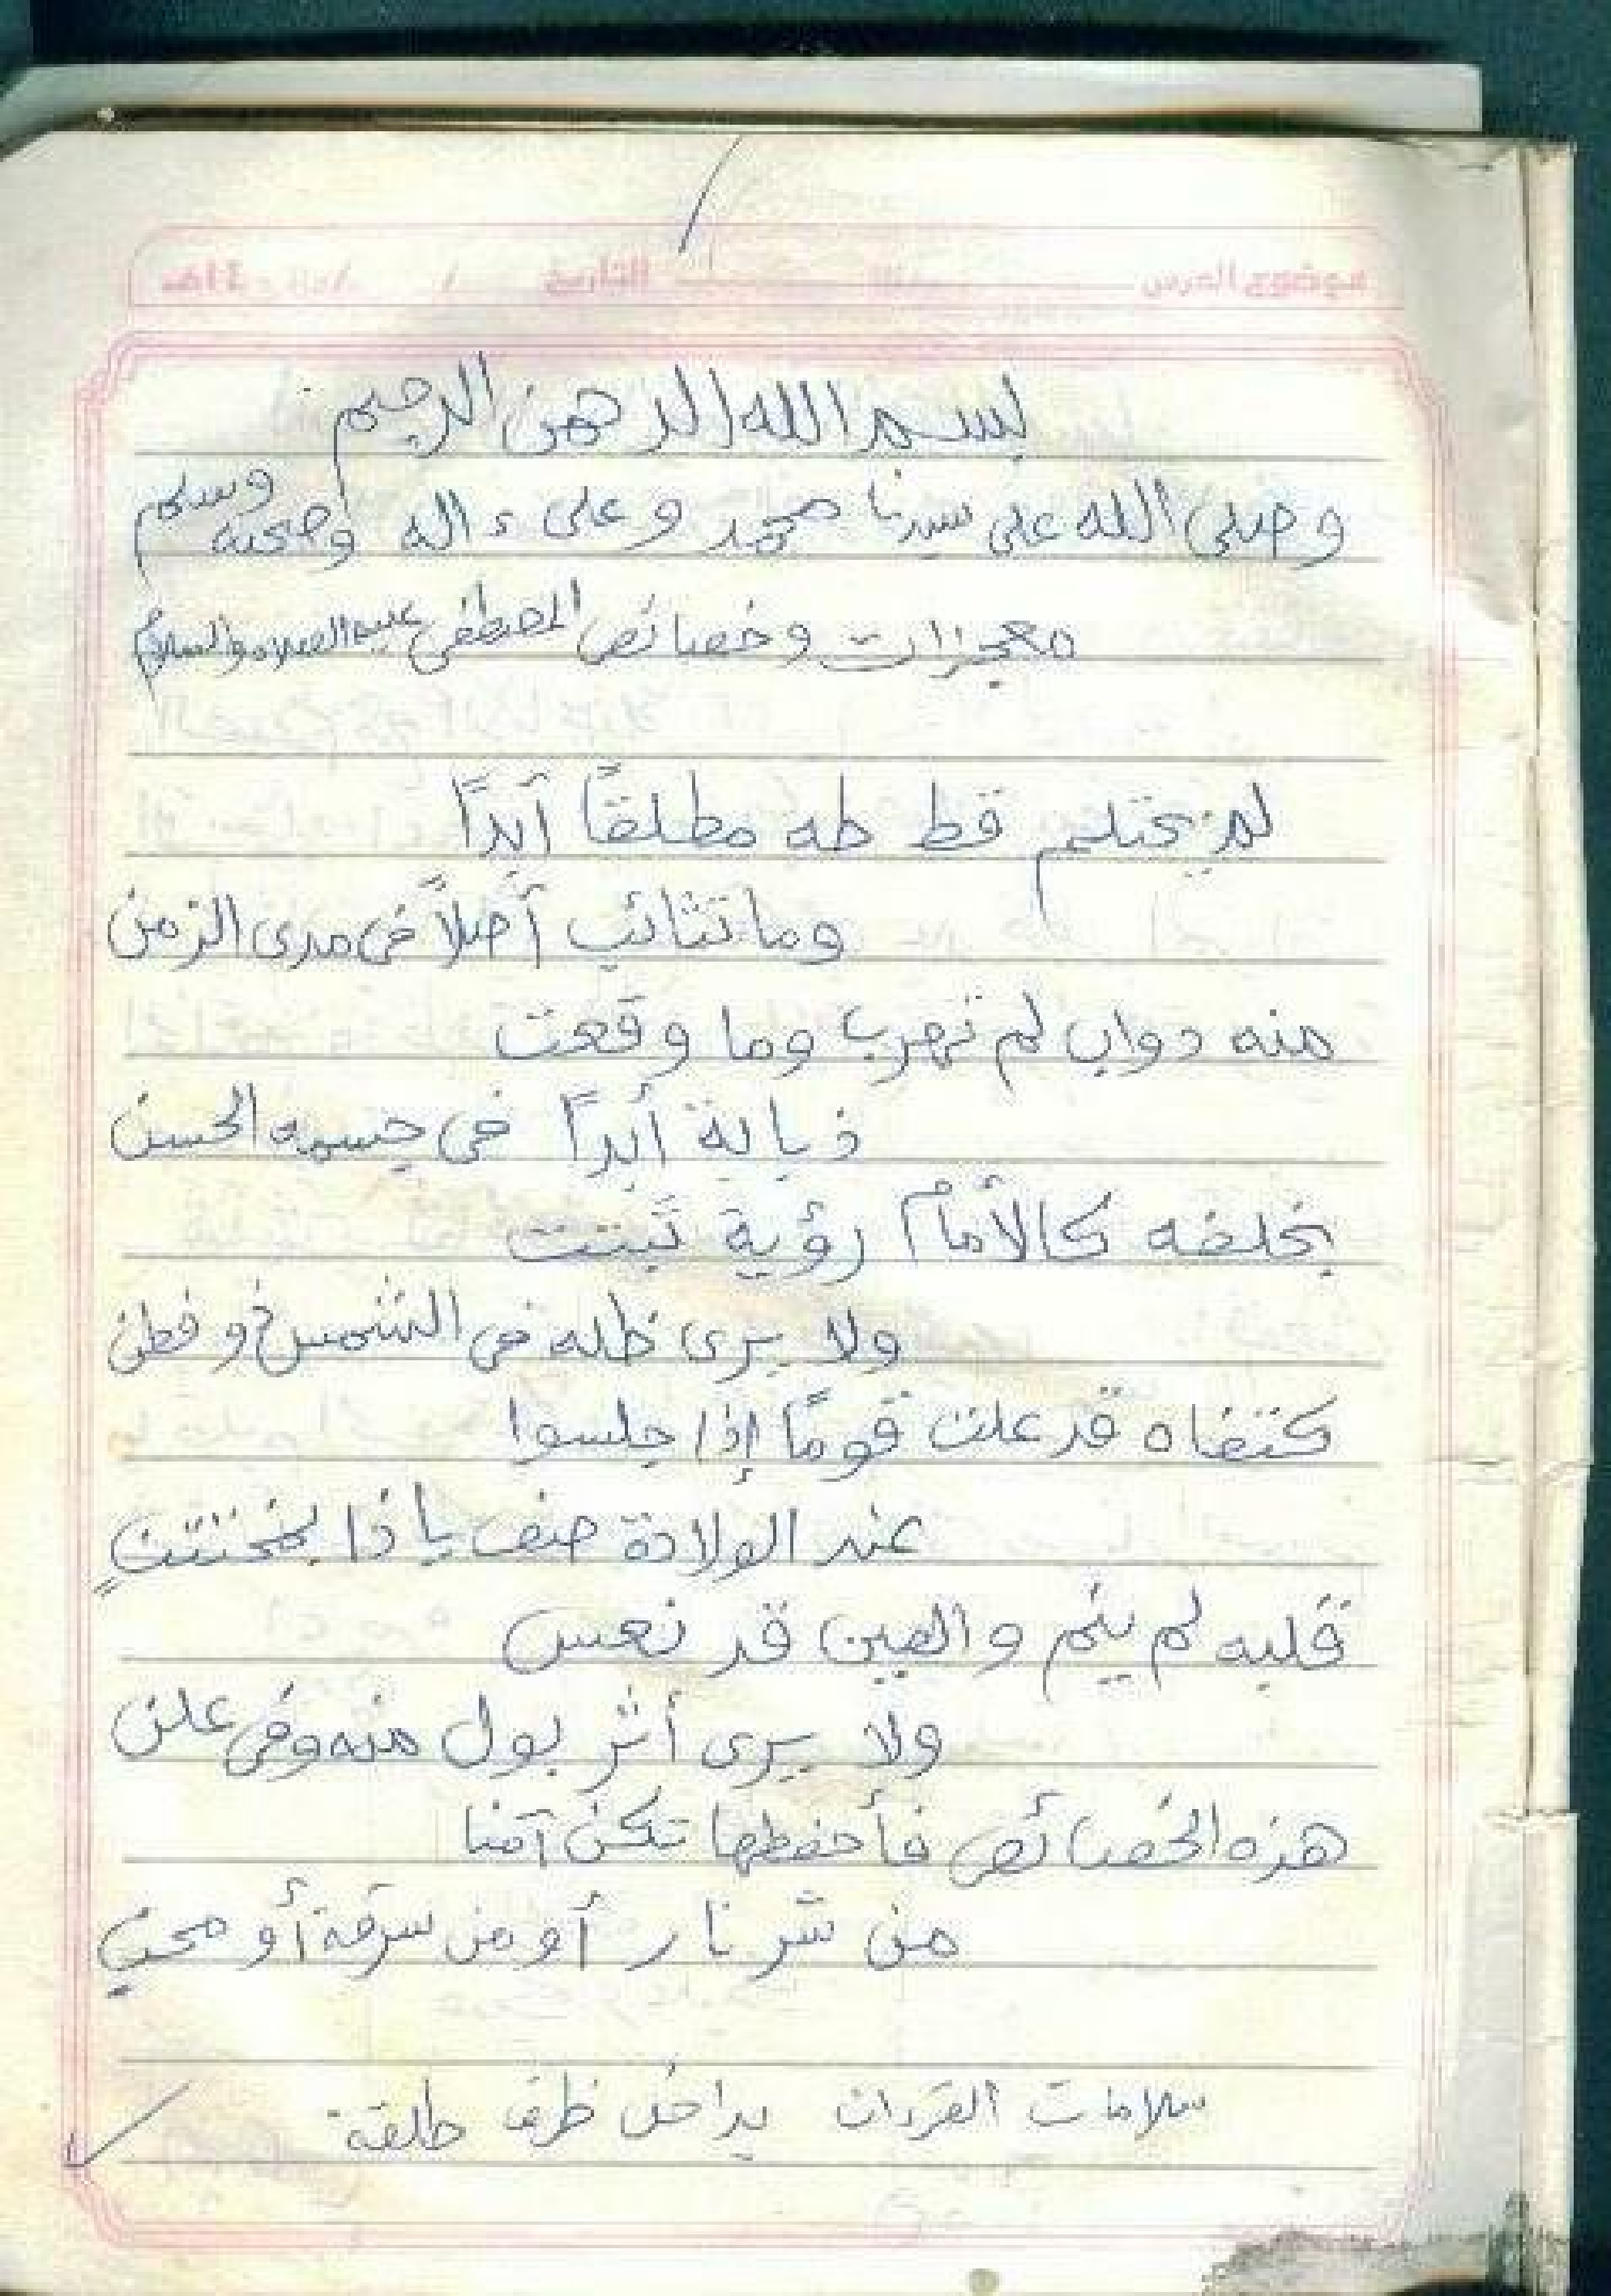 بسم الله الرحمن الرحيم
وصلى الله على سيدنا محمد وعلى ءاله وصحبه وسلم
معجزات وخصائص المصطفى عليه الصلاة والسلام
لم يحتلم قط طه مطلقاً أبداً
وما تثائب أصلاً في مدى الزمن
منه دواب لم تهرب وما وقعت
ذبابة أبداً في جسمه الحسن
بخلفه كالأمام رؤية ثبتت
ولا يرى ظله في الشمس ذو فطن
كتفاه قد علت قوماً إذا جلسوا
عند الولادة صف يا ذا بمختتنٍ
قلبه لم ينم والعين قد نعس
ولا يرى أثر بول منه وفي علن
هذه الخصائص فأحفظها تكن آمنا
من شر نار أو من سرقة أو محن
سلامات القرءان بداخل ظرف طلقة